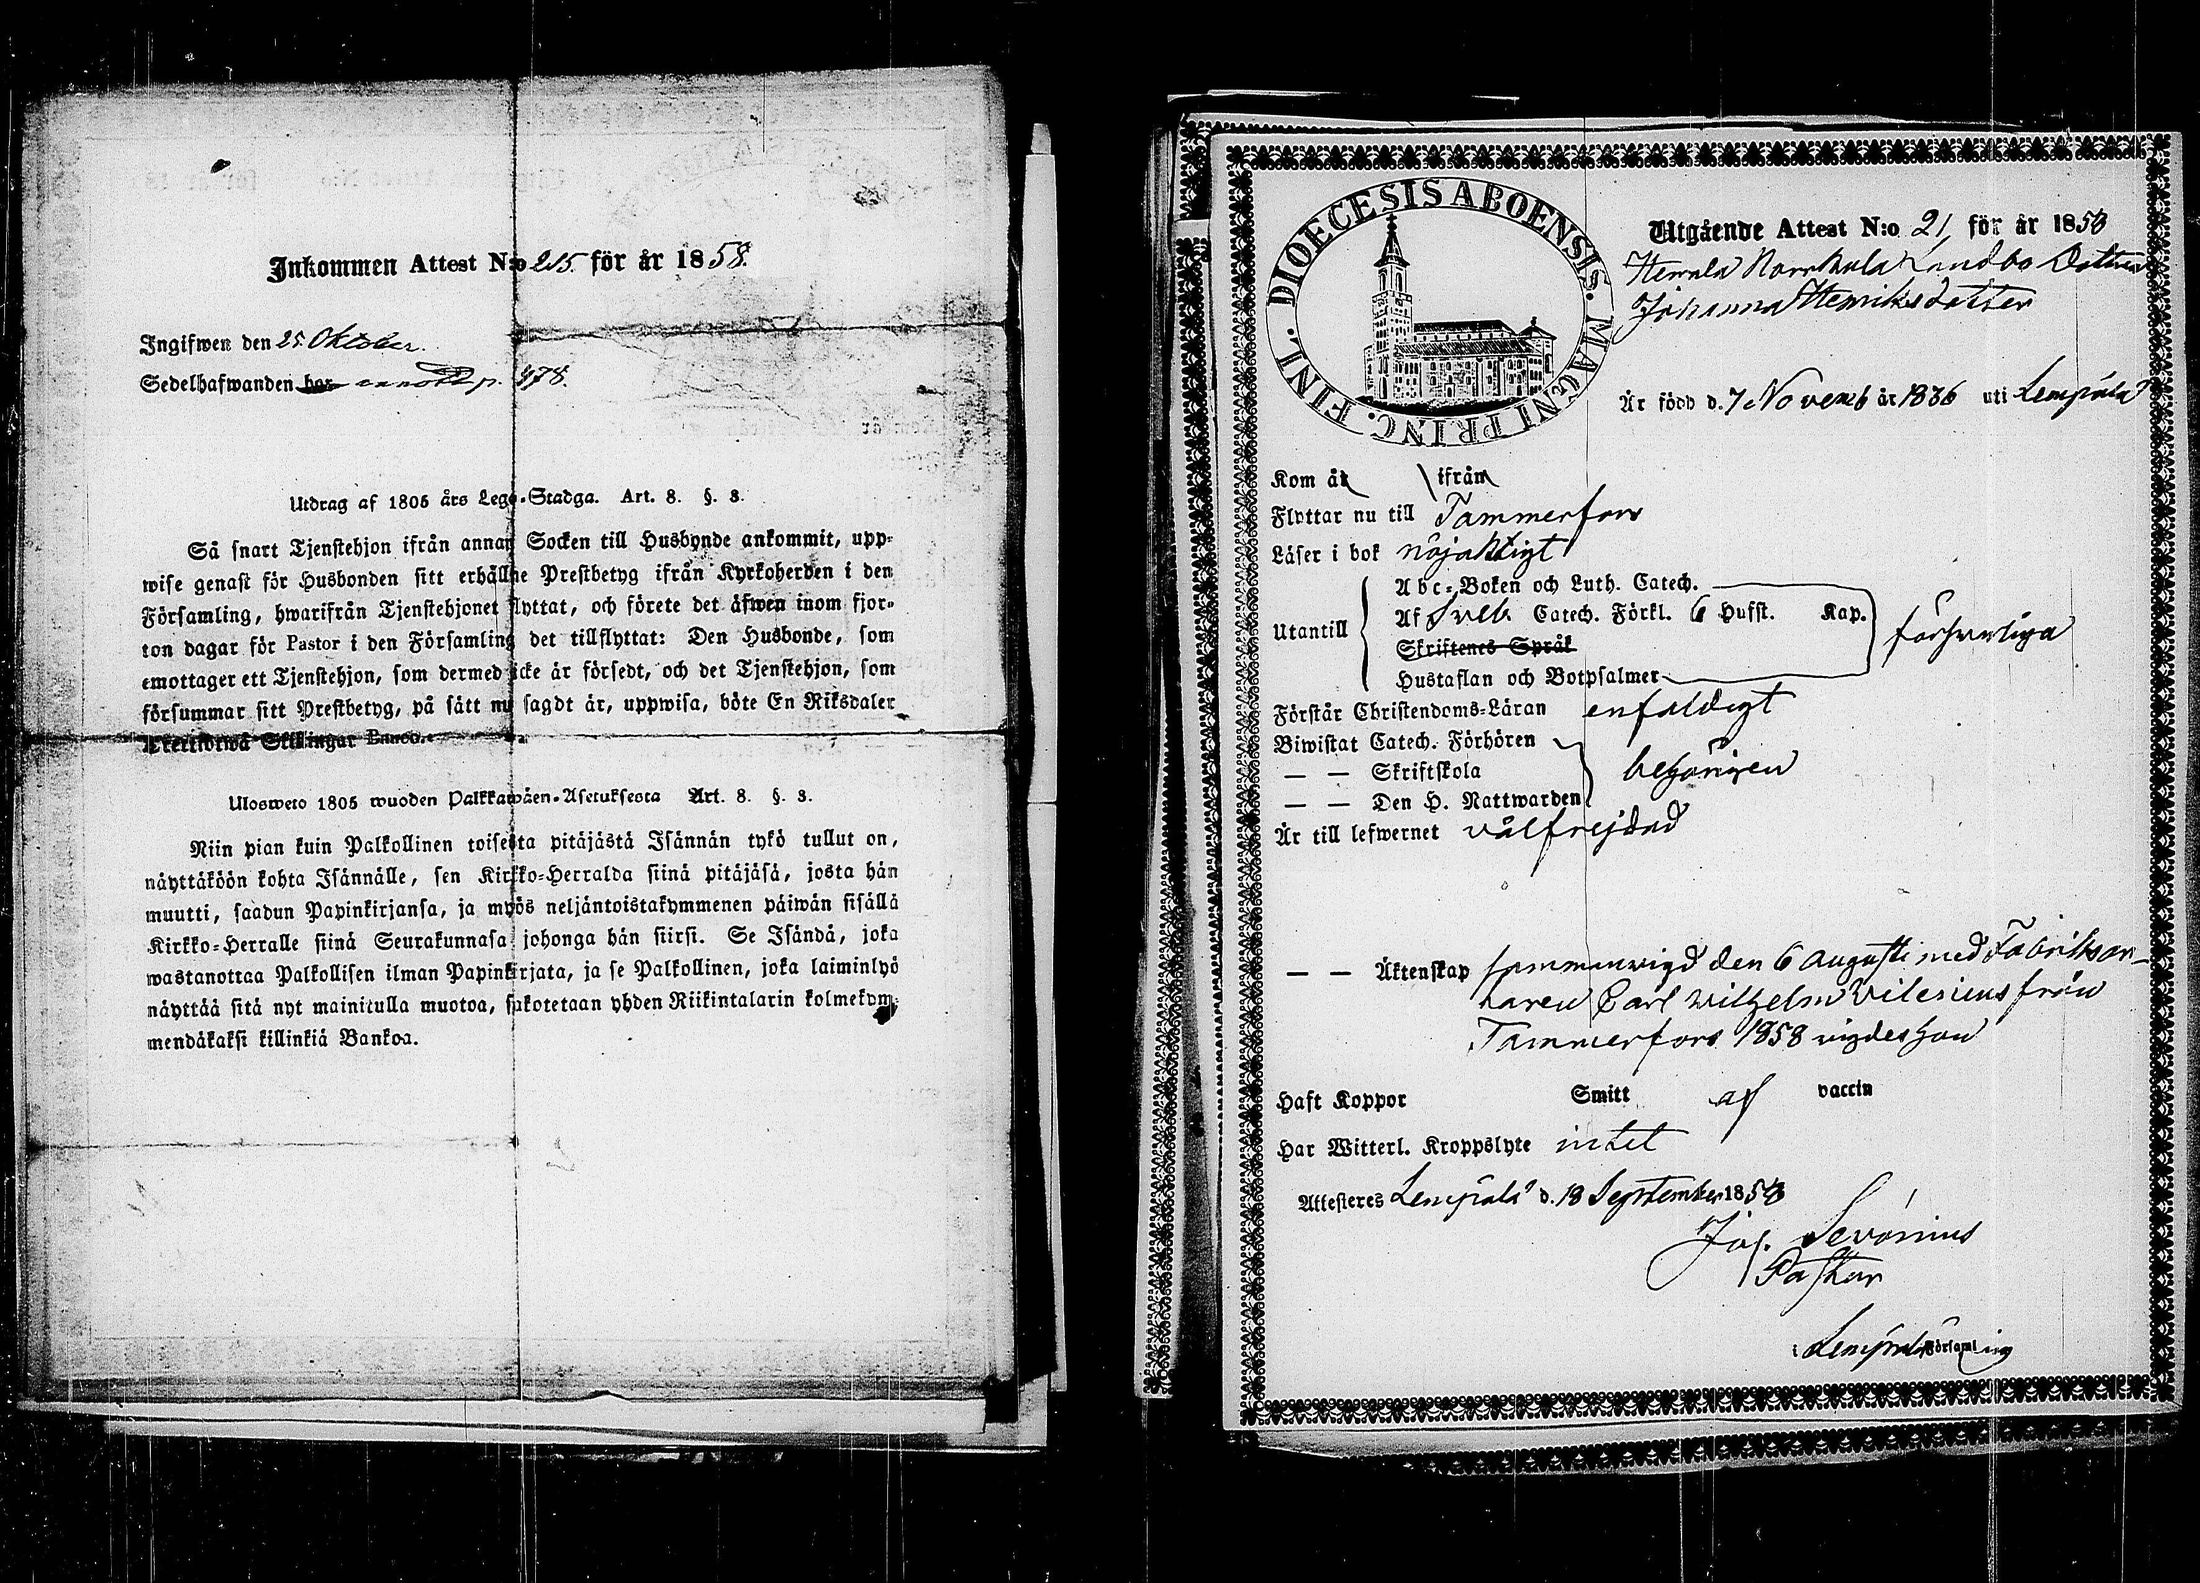 Inkommen Attest N:o 215. för år 1858.
Ingifwen den 25 Oktober.
Sedelhafwanden bor annoter p. 478.
Utdrag af 1805 års Lego-Stadga. Art. 8. §. 8.
Så snart Tjenstehjon ifrån annan Socken till Husbonde ankommit, upp-
wise genast för Husbonden sitt erhållne Prestbetyg ifrån Kyrkoherden i den
Församling, hwarifrån Tjenstehjonet flyttat, och förete det äfwen inom fjor-
ton dagar för Pastor i den Församling det tillflyttat: Den Husbonde, som
emottager ett Tjenstehjon, som dermed icke är försedt, och det Tjenstehjon, som
försummar sitt Prestbetyg, på sätt nu sagdt är, uppwisa, böte En Riksdaler
Åkertiotwå Skillingar Banco.
Ulosweto 1805 wuoden Palkkawäen-Asetuksesta Art. 8. §. 3.
Niin pian kuin Palkollinen toisesta pitäjästä Isännän tykö tullut on,
näyttäköön kohta Isännälle, sen Kirkko-Herralda siinä pitäjäsä, josta hän
muutti, saadun Papinkirjansa, ja myös neljäntoistakymmenen päiwän sisällä
Kirkko-Herralle siinä Seurakunnasa johonga hän siirsi. Se Isändä, joka
wastanottaa Palkollisen ilman Papinkirjata, ja se Palkollinen, joka laiminlyö
näyttää sitä nyt mainitulla muotoa, sakotetaan yhden Riikintalarin kolmekym-
mendäkaksi killinkiä Bankoa.
DIOECESIS ABOENSIS. MAGNI PRINC. FINL.
Utgående Attest N:o 21 för år 1858
Herrala Norrkula Landbo Dottren
Johanna Henriksdotter
Är född d. 7 Novemb år 1836 uti Lempälä
Kom år ifrån
Flyttar nu till Tammerfors
Läser i bok nöjaktigt
Utantill
Abc-Boken och Luth. Catech.
Af Sveb. Catech. Förkl. 6 Hufst. Kap.
Skriftenes Språk
Hustaflan och Botpsalmer
försvarliga
Förstår Christendoms-Läran enfaldigt
Biwistat Catech. Förhören
— — Skriftskola
— — Den H. Nattwarden
behörigen
Är till lefwernet välfrejdad
— — Äktenskap sammanvigd den 6 Augusti med Fabriksar-
karen Carl Wilhelm Vilenius från
Tammerfors 1858 vigdes hon
Haft Koppor Smitt af vaccin
Har Witterl. Kroppslyte intet
Attesteres Lempälä d. 18 September 1858
Jos. Sevonius
Pastor
i Lempälä Församling